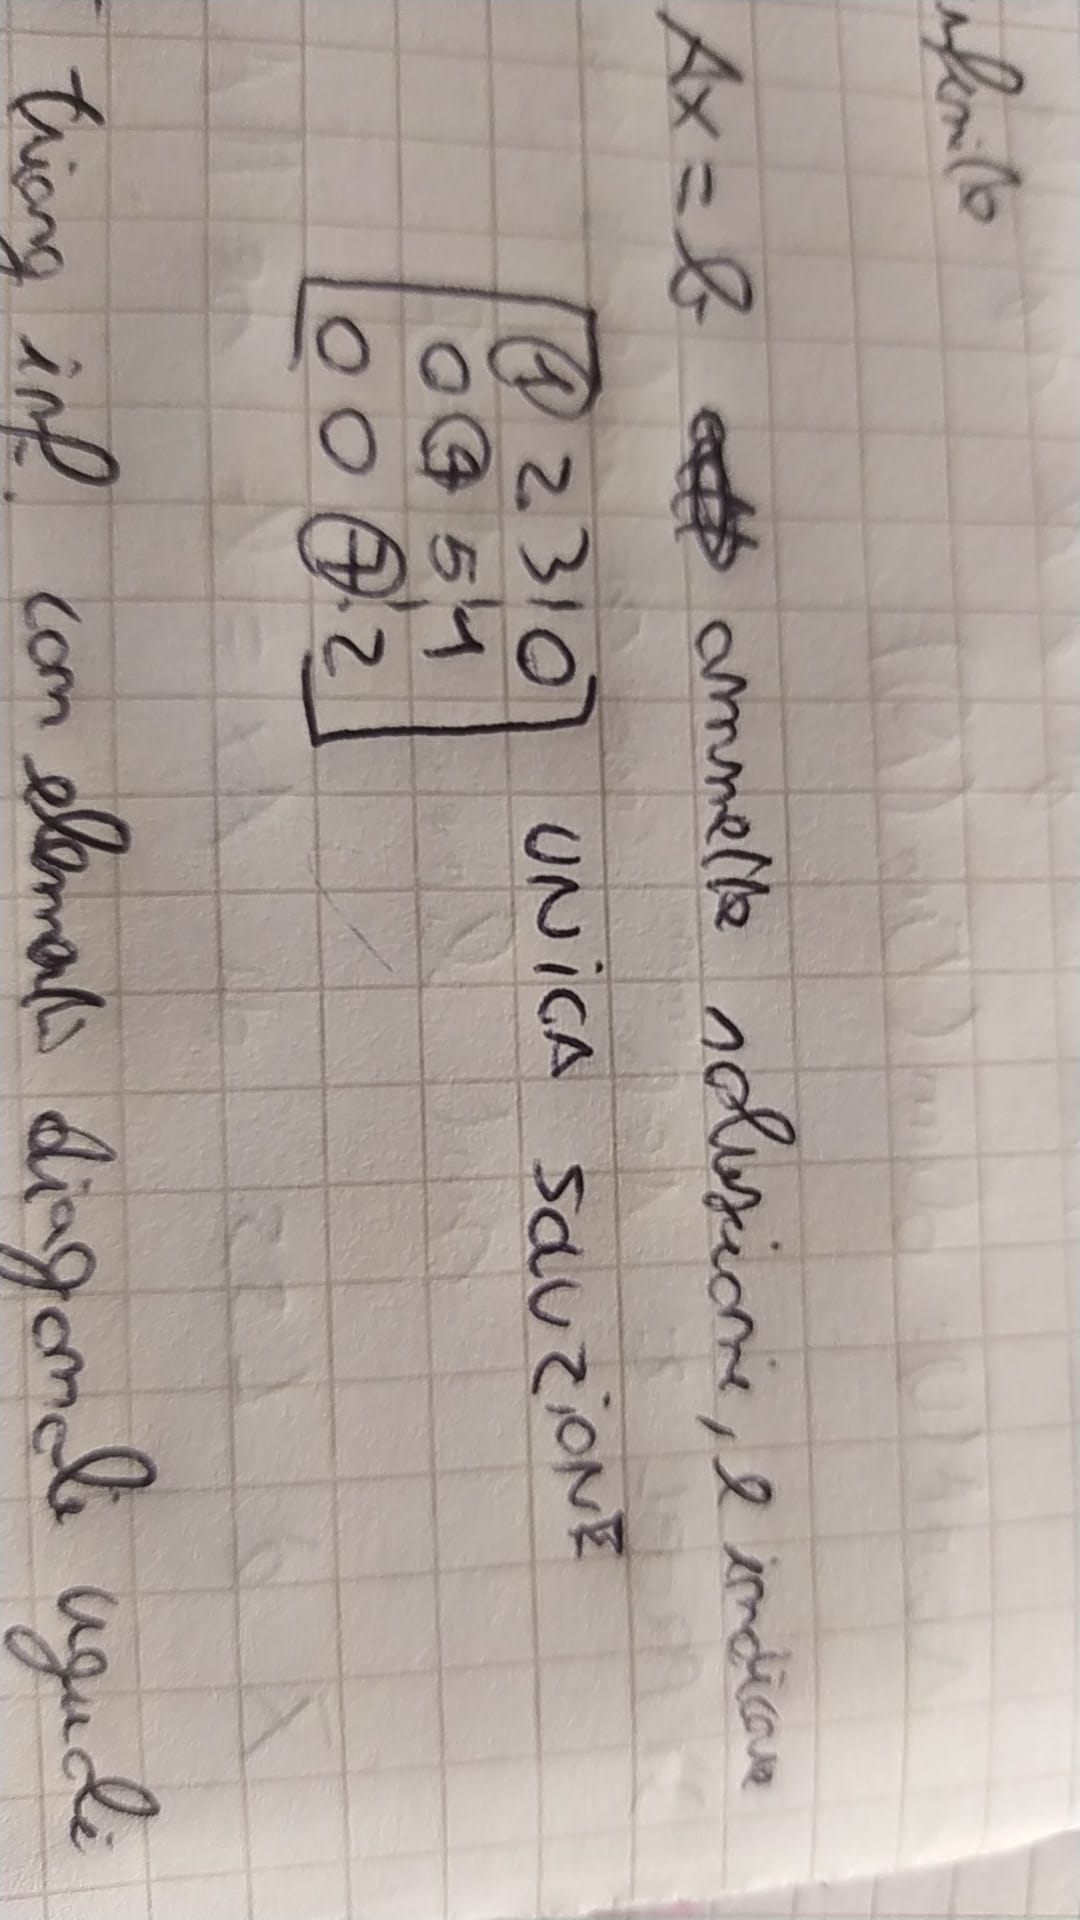 Ax = b ammette soluzione, e indicare
1 2 3 | 0
0 4 5 | 4
0 0 7 | 2
UNICA SOLUZIONE
triang inf. con elementi diagonali uguali